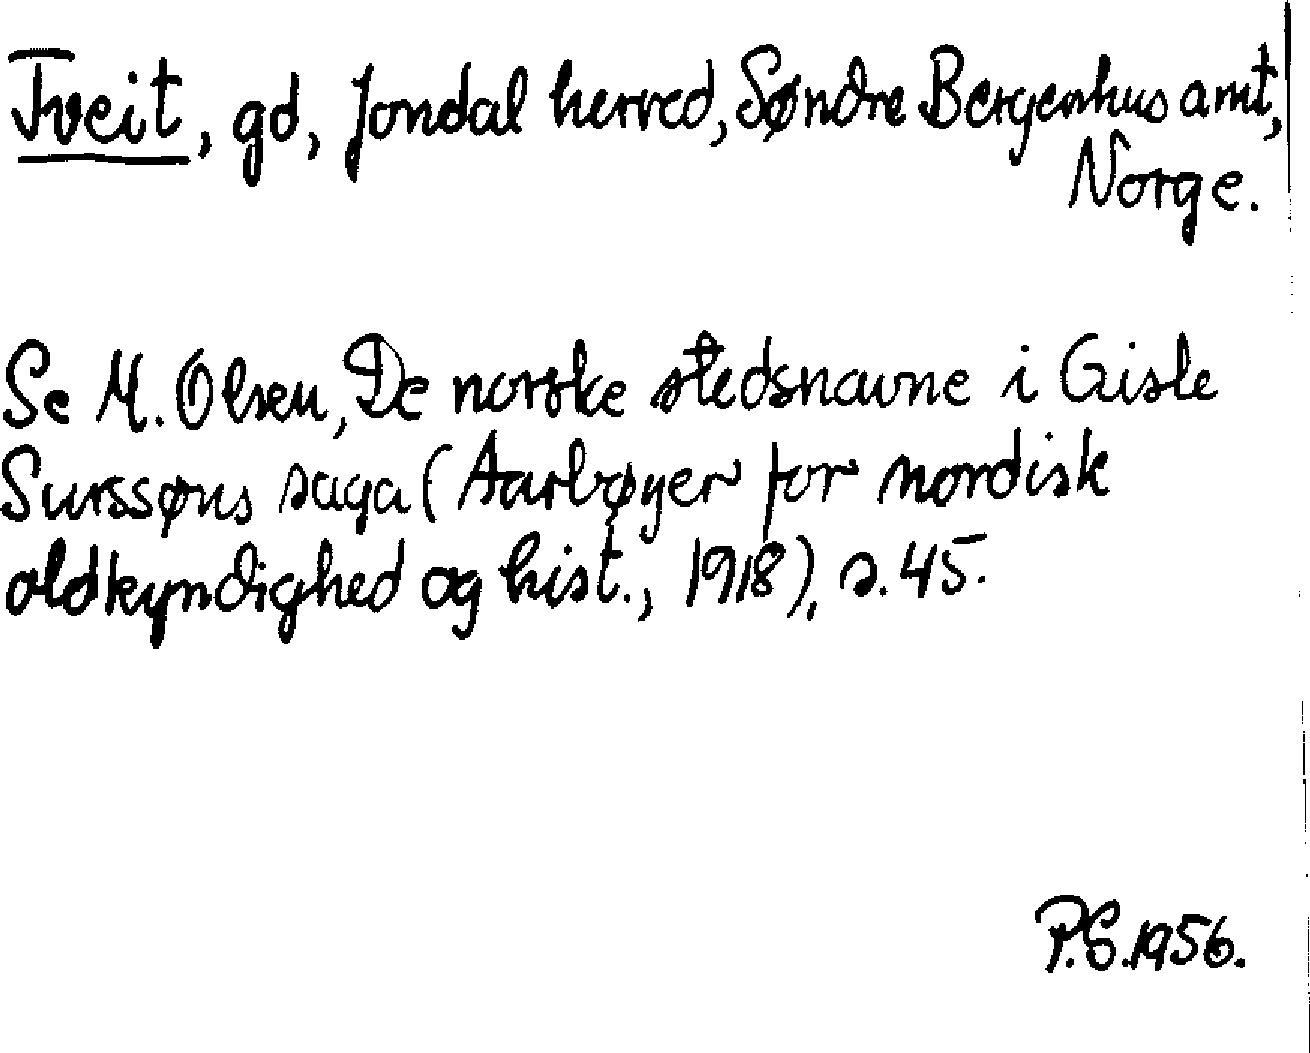 Tveit, gd, Jondal herred, Søndre Bergenhus amt,
Norge.
Se M. Olsen, De norske stedsnavne i Gisle
Surssøns saga (Aarbøger for nordisk
oldkyndighed og hist., 1918), s. 45.
P.S. 1956.